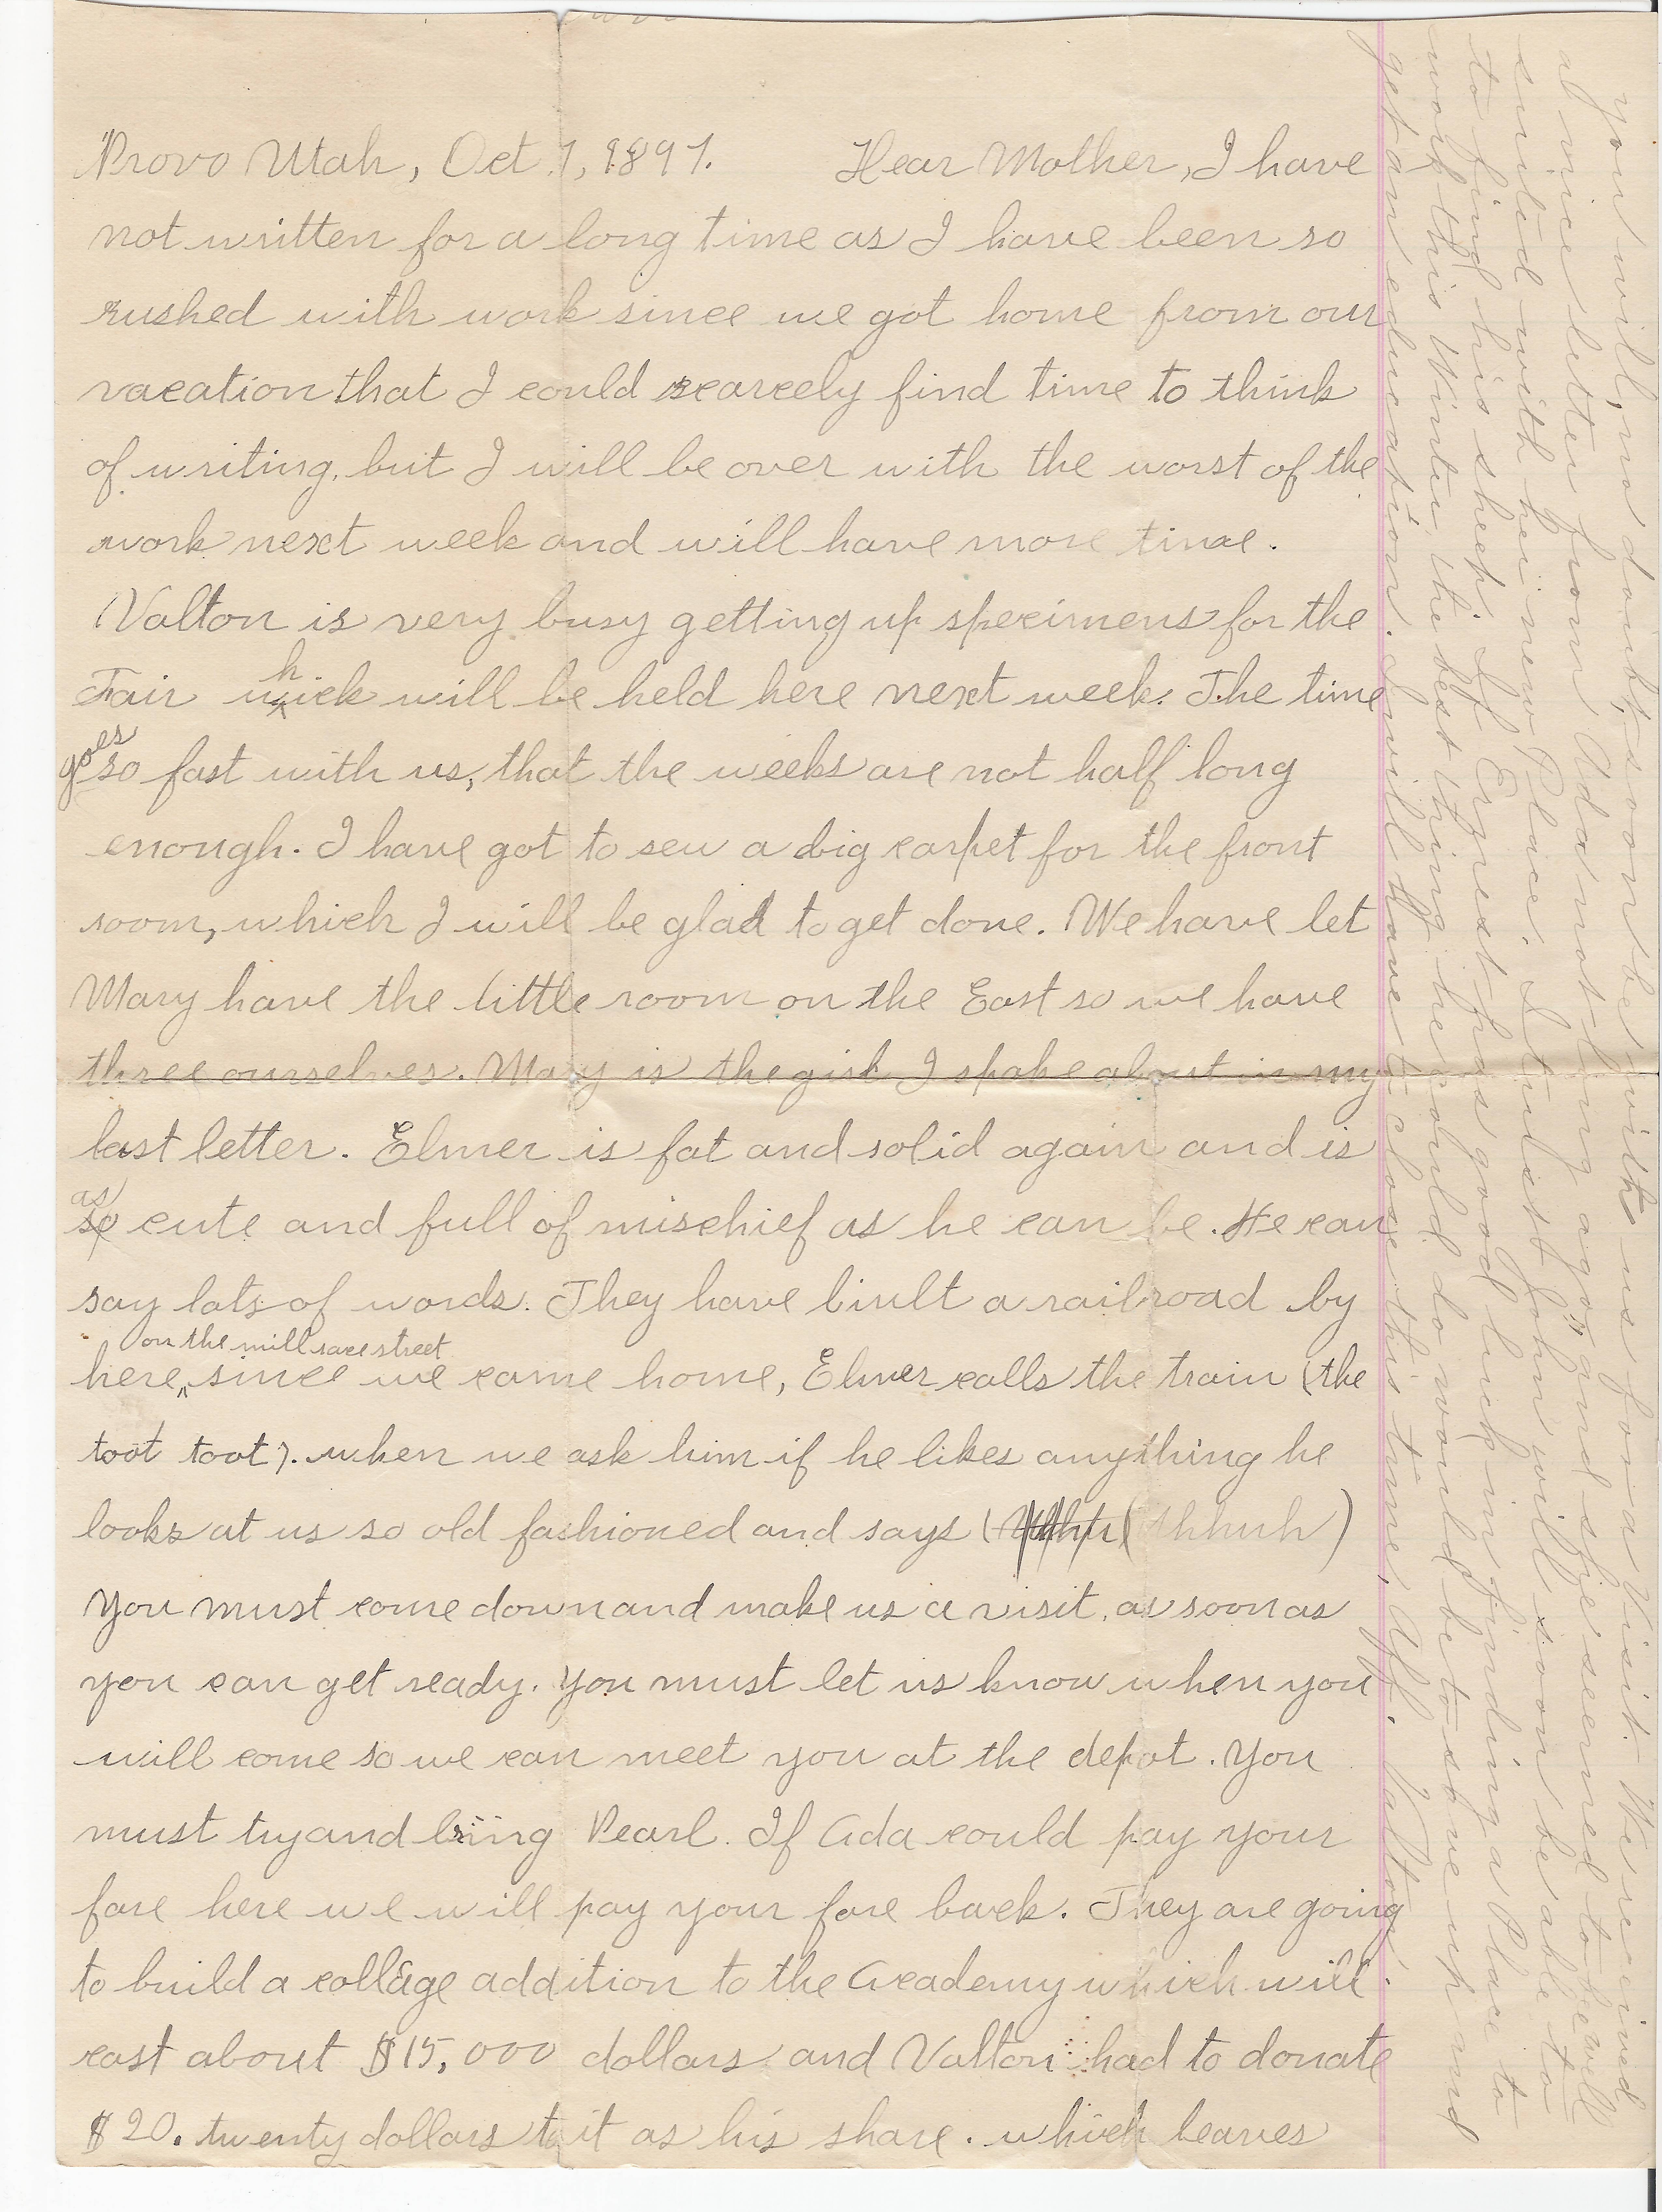 Provo Utah, Oct 7, 1897. Dear Mother, I have
not written for a long time as I have been so
rushed with work since we got home from our
vacation that I could scarcely find time to think
of writing, but I will be over with the worst of the
work next week and will have more time.
Valton is very busy getting up specimens for the
Fair which will be held here next week. The time
goes so fast with us, that the weeks are not half long
enough. I have got to sew a big carpet for the front
room, which I will be glad to get done. We have let
Mary have the little room on the East so we have
three ourselves. Mary is the girl I spoke about in my
last letter. Elmer is fat and solid again and is
as cute and full of mischief as he can be. He can
say lots of words. They have biult a railroad by
here, on the mill race street since we came home, Elmer calls the train (the
toot toot). when we ask him if he likes anything he
looks at us so old fashioned and says (
You must come down and make us a visit, as soon as
you can get ready. You must let us know when you
will come so we can meet you at the depot. You
must try and bring Pearl. If Ada could pay your
fare here we will pay your fare back. They are going
to build a collage addition to the Academy which will
cost about $15,000 dollars and Valton had to donate
$20. twenty dollars to it as his share. which leaves
you will, no doubt, soon be with us for a visit. We received
a nice letter from Ada not long ago, and she seemed to be well
suited with her new Place. I trust John will soon be able to
to find his sheep. If Ernest has good luck in finding a Place to
work this Winter, the best thing he could do would be to shove up and
get an education. I will have to close this time, Aff. Valton.